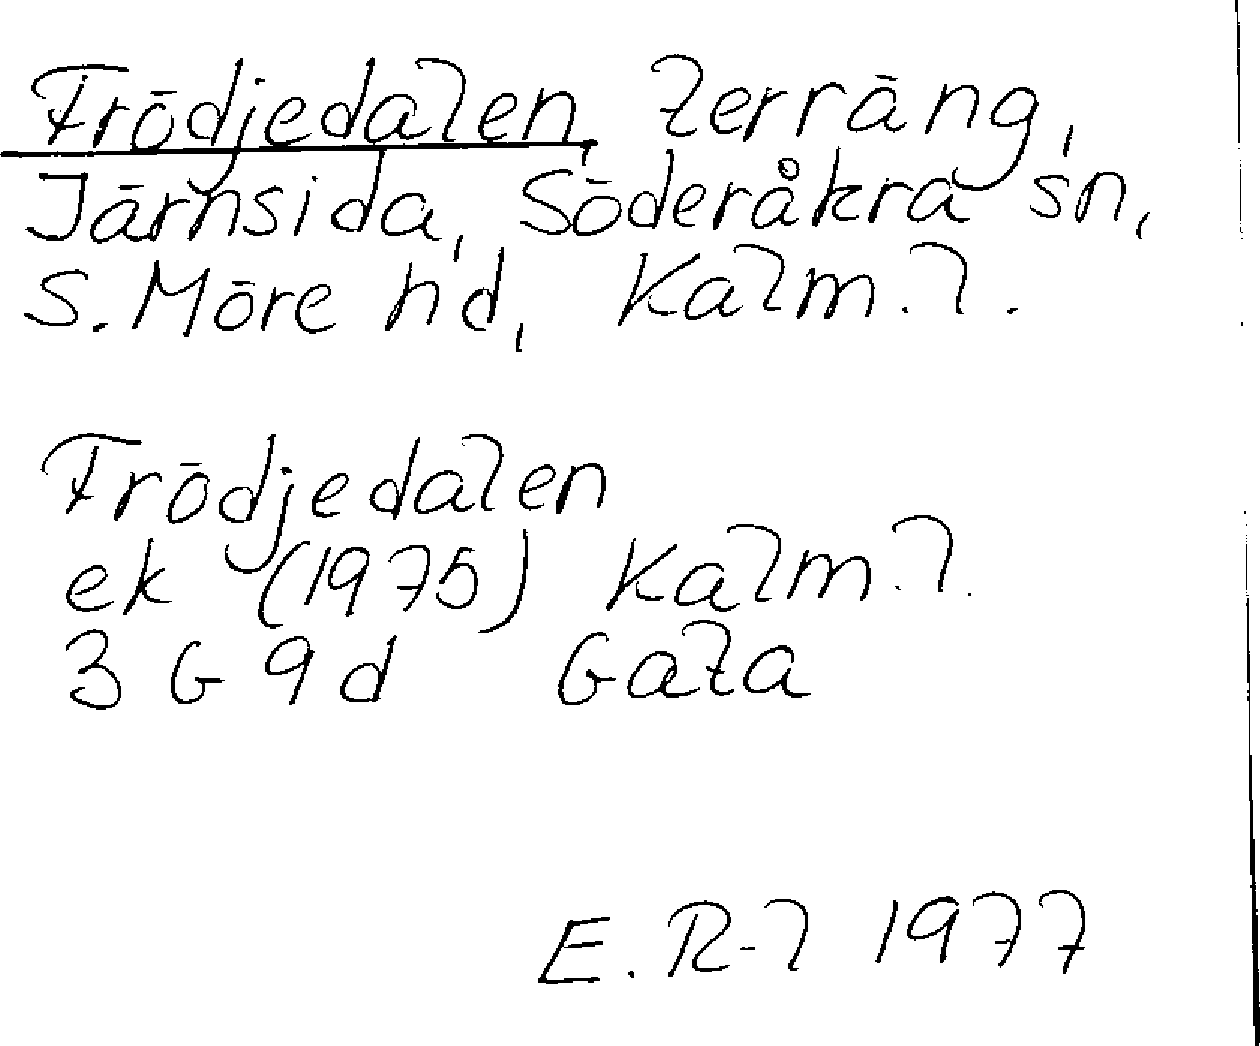 Frödjedalen, terräng,
Järnsida, Söderåkra sn,
S. Möre hd, Kalm. l.
Frödjedalen
ek (1975) Kalm. l.
3 G 9 d Gata
E. R-l 1977